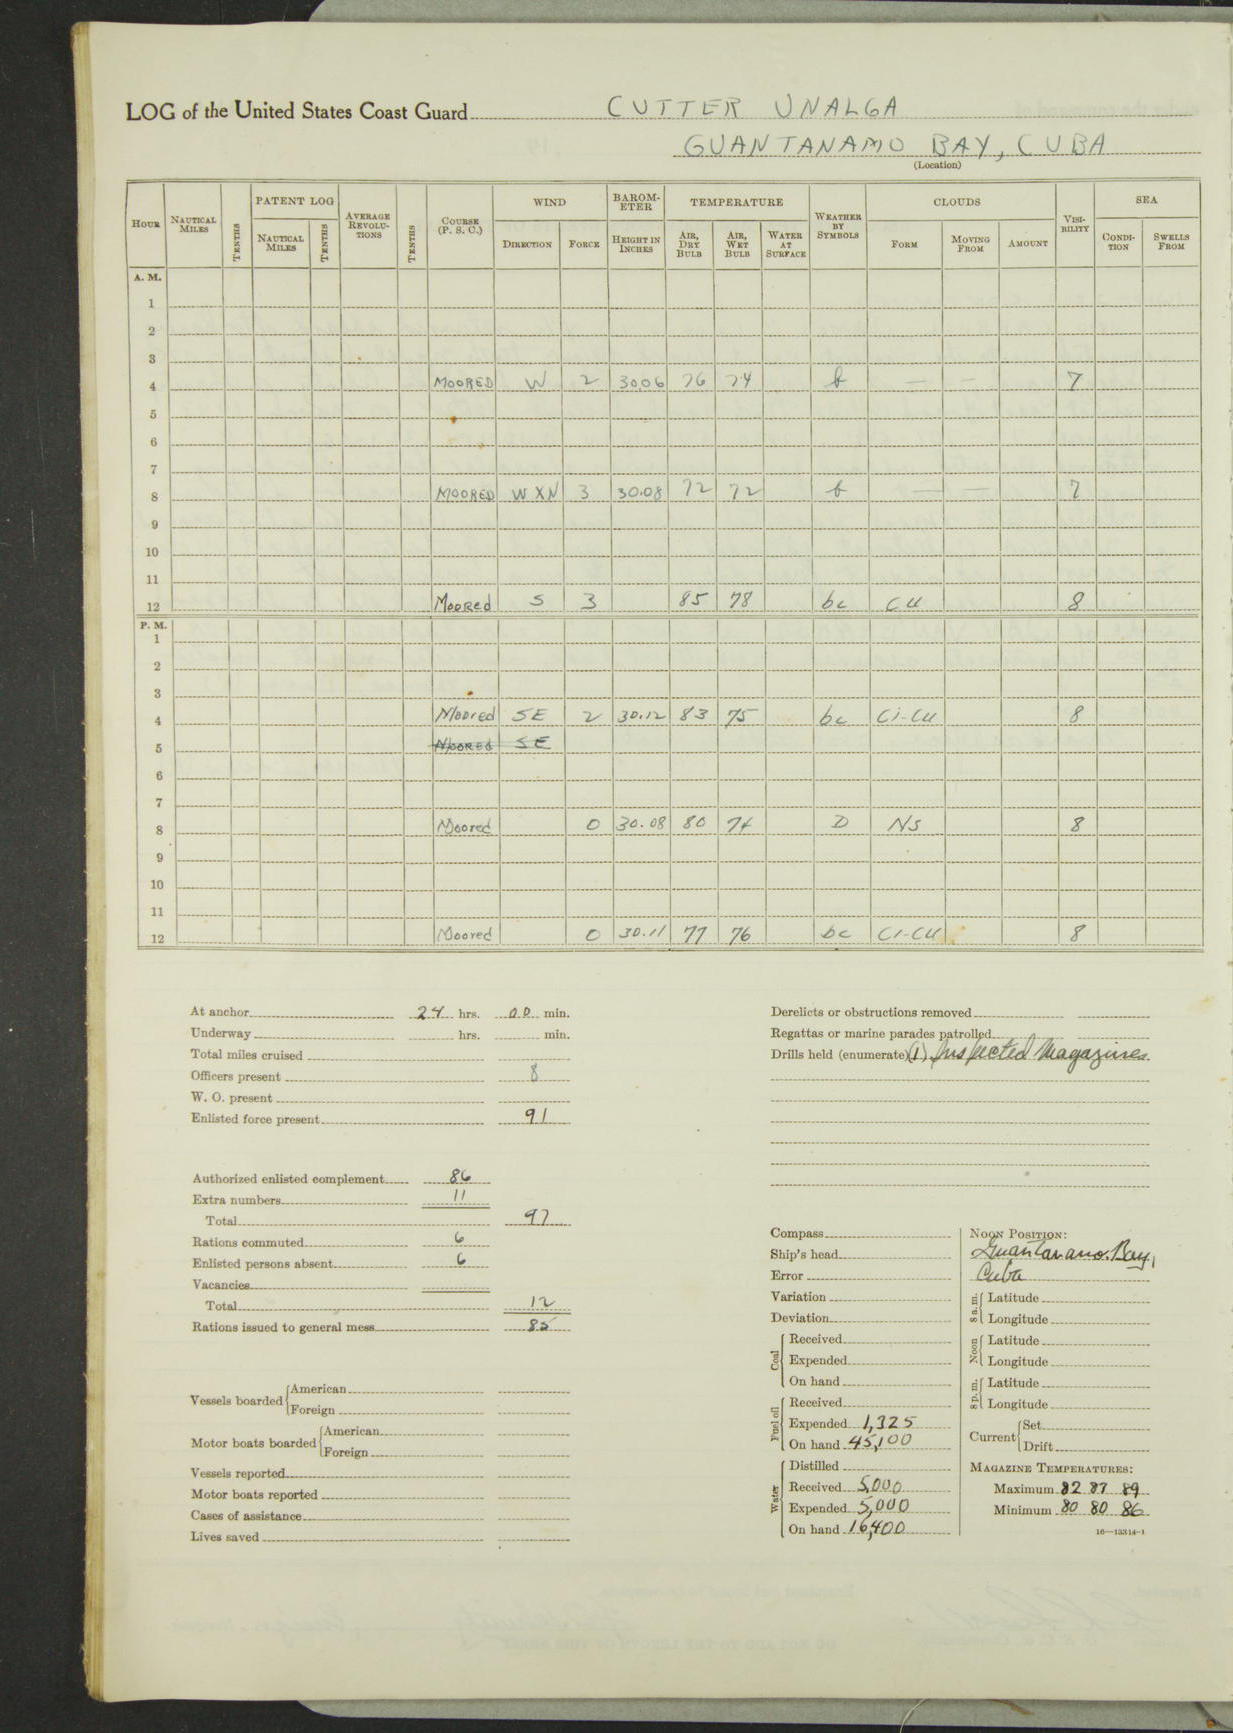 LOG of the United States Coast Guard CUTTER UNALGA
GUANTANAMO BAY, CUBA
(Location)
HOUR NAUTICAL MILES TENTHS PATENT LOG NAUTICAL MILES TENTHS AVERAGE REVOLU-TIONS TENTHS COURSE (P. S. C.) WIND DIRECTION FORCE BAROM-ETER HEIGHT IN INCHES TEMPERATURE AIR, DRY BULB AIR, WET BULB WATER AT SURFACE WEATHER BY SYMBOLS CLOUDS FORM MOVING FROM AMOUNT VISI-BILITY SEA CONDI-TION SWELLS FROM
A. M.
1
2
3
4 MOORED W 2 30.06 76 74 b — — 7
5
6
7
8 MOORED WXN 3 30.08 72 72 b — — 7
9
10
11
12 Moored S 3 85 78 bc CU 8
P. M.
1
2
3
4 Moored SE 2 30.12 83 75 bc Ci-CU 8
5 MOORED SE
6
7
8 Moored 0 30.08 80 74 D NS 8
9
10
11
12 Moored 0 30.11 77 76 bc Ci-CU 8
At anchor 24 hrs. 00 min.
Underway hrs. min.
Total miles cruised
Officers present 8
W. O. present
Enlisted force present 91
Authorized enlisted complement 86
Extra numbers 11
Total 97
Rations commuted 6
Enlisted persons absent 6
Vacancies
Total 12
Rations issued to general mess 85
Vessels boarded American
Foreign
Motor boats boarded American
Foreign
Vessels reported
Motor boats reported
Cases of assistance
Lives saved
Derelicts or obstructions removed
Regattas or marine parades patrolled
Drills held (enumerate) (1) Inspected Magazines.
Compass
Ship's head
Error
Variation
Deviation
Coal Received
Expended
On hand
Fuel oil Received
Expended 1,325
On hand 45,100
Water Distilled
Received 5,000
Expended 5,000
On hand 16,400
NOON POSITION:
Guantanamo Bay,
Cuba
8 a.m. Latitude
Longitude
Noon Latitude
Longitude
8 p.m. Latitude
Longitude
Current Set
Drift
MAGAZINE TEMPERATURES:
Maximum 82 87 89
Minimum 80 80 86
16—13314-1